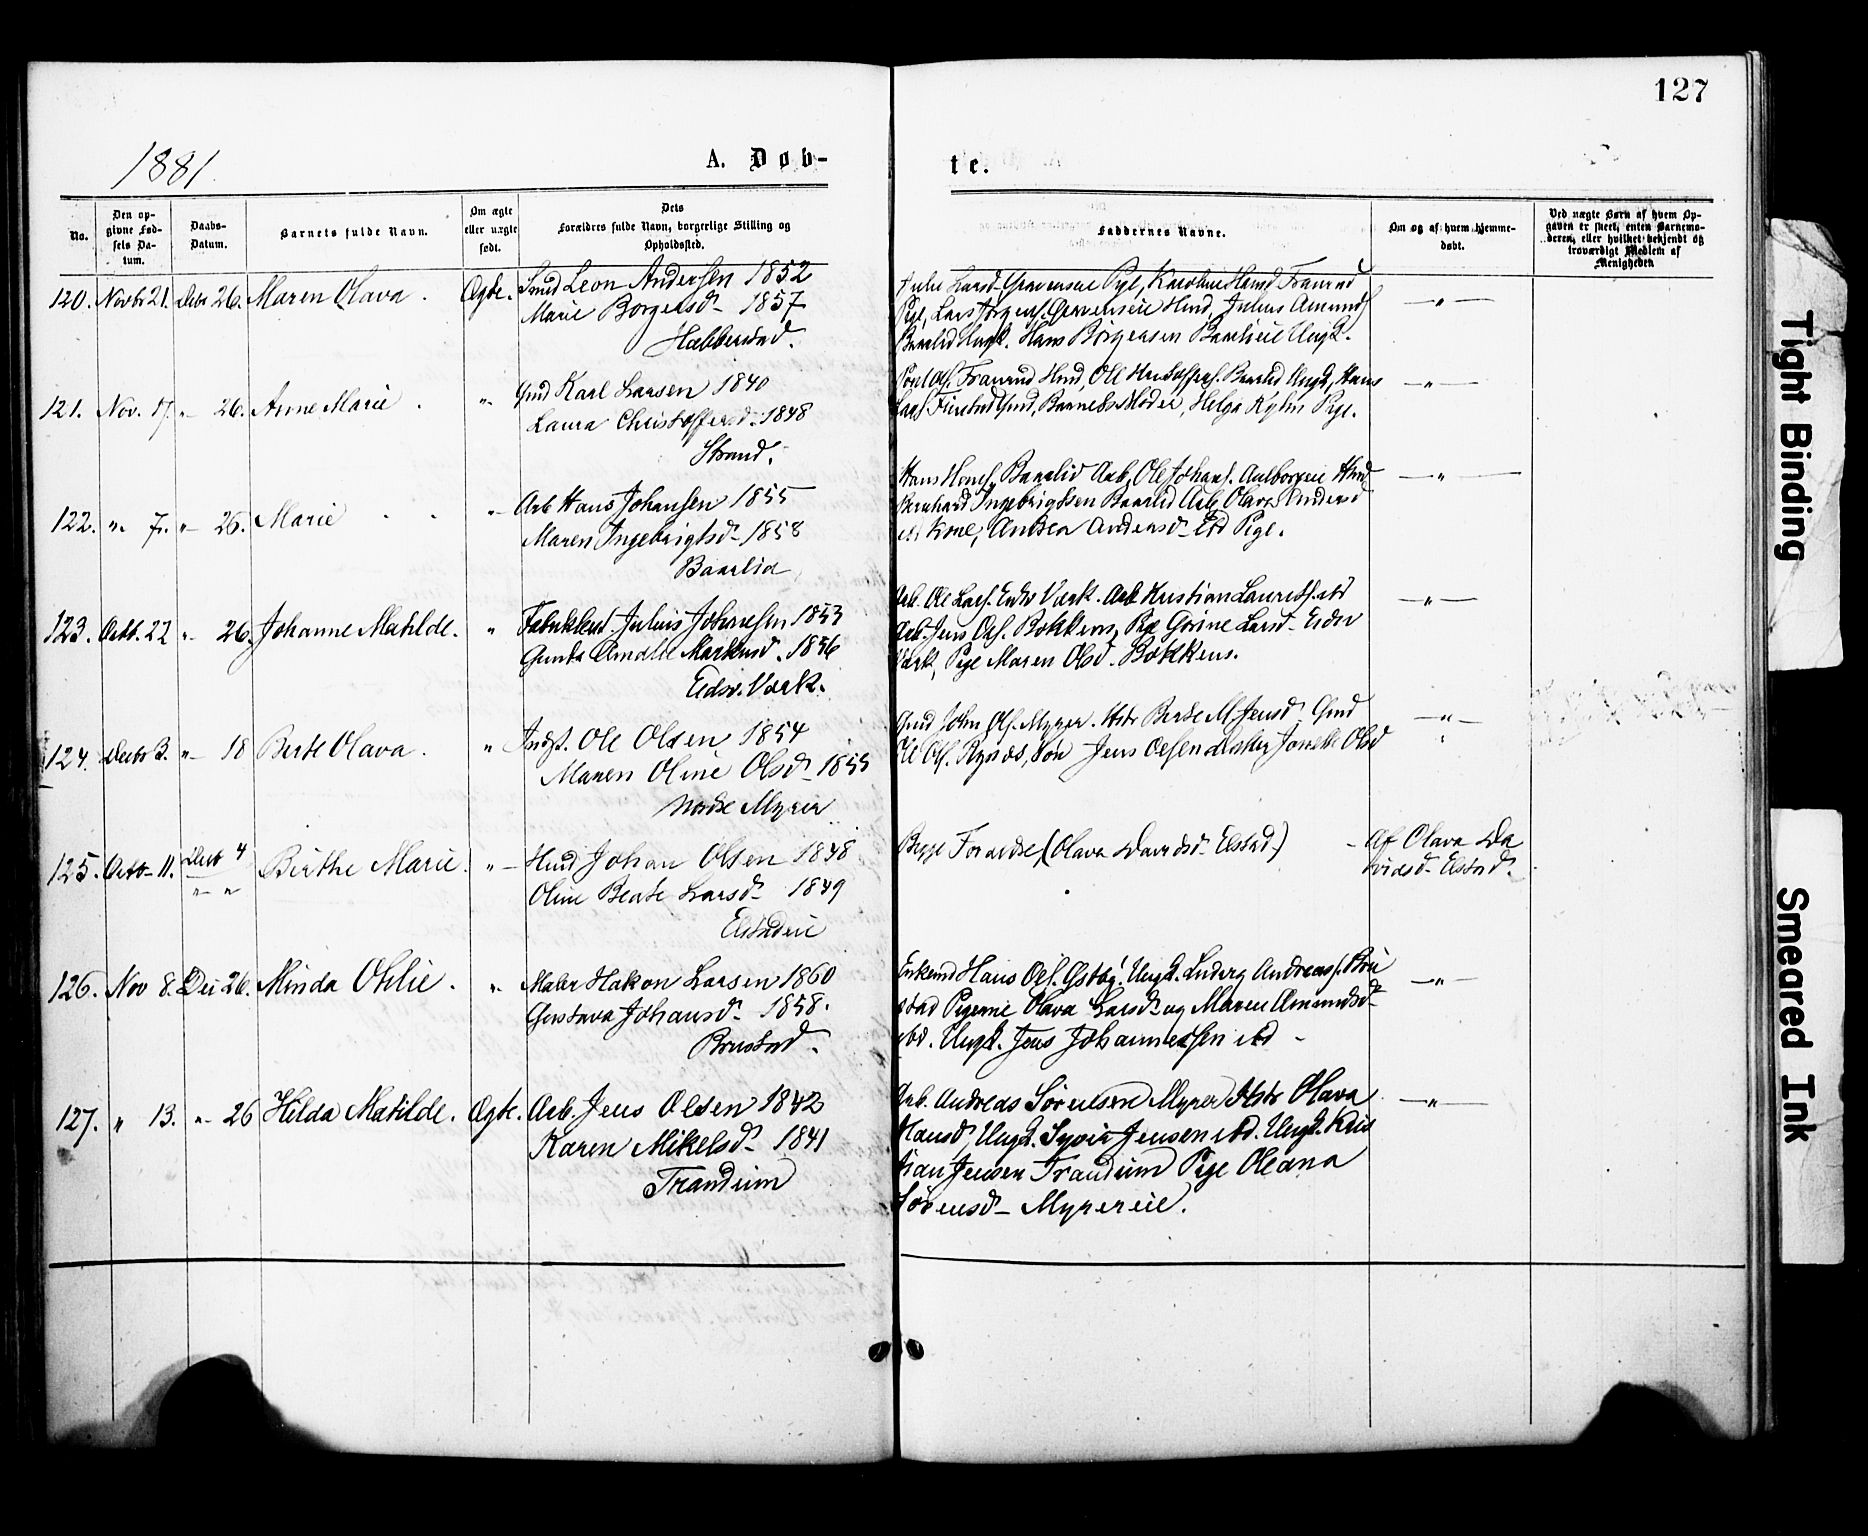 127
1881
A. Døb-
te.
No.
Den op-
givne Fød-
sels Da-
tum.
Daabs-
Datum.
Barnets fulde Navn.
Om ægte
eller uægte
født.
Dets
Forældres fulde Navn, borgerlige Stilling og
Opholdssted.
Faddernes Navne.
Om og af hvem hjemme-
døbt.
Ved uægte Barn af hvem Op-
gaven er skeet, enten Barnemo-
deren, eller hvilket bekjendt og
troværdigt Medlem af
Menigheden
120. Novbr 21. Decbr 26. Maren Olava . Ægte. Leon Andersen 1852
Marie Borgersd. 1857
Pige, Karoline Hansd
Pige, Lars Hmd, Julius Amunds.
Ungk. Hans Børgersen Ungk.
— " —
121. Nov. 17. " 26. Anne Marie . " Gmd Karl Larsen 1840
Laura Christoffersd. 1848
Strand.
Hmd, Ole Ungk, Hans
Gmd, Barnets Moder, Helga Pige.
— " —
122. " 7. " 26. Marie " Arb Hans Johansen 1855
Maren Ingebrigtsd. 1858
Baarlid
Hans Baarlid Arb, Ole Johans. Hmd
Bernhard Ingebrigtsen Baarlid Arb, Olava Andersd
Kone, Andersd Pige.
— " —
123. Octb. 22 " 26. Johanne Matilde. " Julius Johnesen 1853
Amalie 1856
Eidsv. Værk.
Arb. Ole Lars. Værk. Arb. Kristian
Arb. Jens Ols. Bøkkens, Pige Gorine Larsd Eidsv
Værk, Pige Maren Olsd. Bøkkens.
— " —
124. Decbr 3. " 18 Berte Olava . " Indst. Ole Olsen 1854
Maren Oline Olsd. 1855
Nordre Myrer
Gmd John Ols. Myrer. Hstr Berte M. Jensd Gmd
Ole Ols. Jens Olsen Olsd
— " —
125. Octb 11. Decb 4
" "
Birthe Marie. " Hmd Johan Olsen 1848
Oline Beate Larsd. 1849
Elstadeie
Begge Forældre, (Olava Davidsd. Elstad.)
Af Olava Da
vidsd. Elstad.
126. Nov 8. De 26. Minda Othlie . " Maler Hakon Larsen 1860
Gustava Johansd. 1858.
Brustad.
Enkemd Hans Ols. Østby. Ungk. Ludvig Andreas. Bru
stad Pigerne Olava Larsd. og Maren Amundsd.
ibd. Ungk. Jens Johannessen ibd
— " —
127. " 13. " 26 Hilda Matilde. Ægte. Arb. Jens Olsen 1842
Karen Mikelsd. 1841
Trandum
Arb. Andreas Sørensen Myrer Hstr Olava
Hansd, Ungk. Jensen ibd. Ungk. Kris
tian Jensen Trandum Pige Oleana
Sørensd. Myrereie.
— " —
Tight Binding
Smeared Ink